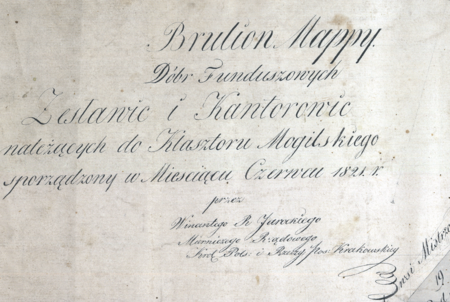 Brulion Mappy.
Dóbr Funduszowych
Zesławic i Kantorowic
należących do Klasztoru Mogilskiego
sporządzony w Miesiącu Czerwcu 1821. r.
przez
Winantego R. Jureckiego
Mierniczego Rządowego
Król. Pols. i Rzeczy Pos. Krakowskiey
19